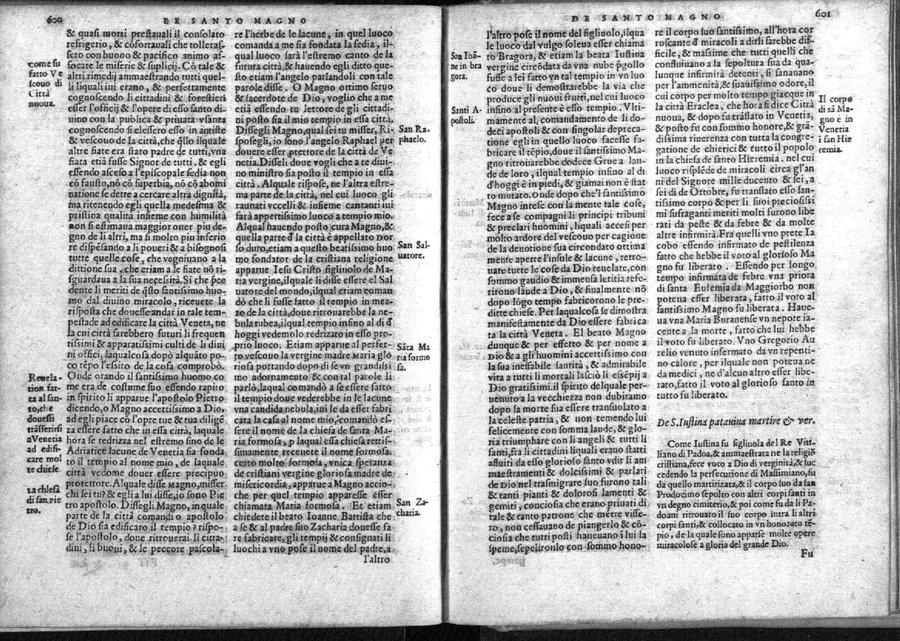 600
DE SANTO MAGNO
& quasi morti prestauali il consolato
refrigerio, & cõfortauali che tolleras-
sero con buono & pacifico animo af-
focate le miserie & supplicij. Cõ tale &
altri rimedij ammaestrando tutti quel-
li liquali iui erano, & perfettamente
cognoscendo li cittadini & forestieri
esser l'officij & l'opere di esso santo di-
uino con la publica & priuata vsanza
cognoscendo si elessero esso in antiste
& vescouo de la città, che q̃llo iquale
altre fiate era stato padre de tutti, vna
fiata etiã fusse Signor de tutti, & egli
essendo asceso a l'episcopale sedia non
cõ fausto, nõ cõ superbia, nõ cõ abomi
natione se dette a cercare altra dignità,
ma ritenendo egli quella medesma &
pristina qualità insieme con humilità
non si estimaua maggior ouer piu de-
gno de li altri, ma si molto piu inferio
re dispẽsando a li poueri & a bisognosi
tutte quelle cose, che vegniuano a la
dittione sua, che etiam a le fiate nõ ri-
guardaua a la sua necessità. Si che pce
dente li meriti de q̃sto santissimo huo-
mo dal diuino miracolo, riceuete la
risposta che douesse andar in tale tem-
pestade ad edificare la città Veneta, ne
la cui città sarebbero futuri li frequen
tissimi & apparatissimi culti de li diui
ni offici, laqualcosa dopò alquãto po-
co tẽpo l'essito de la cosa comprobò.
Onde orando il santissimo huomo co
me era de costume suo essendo rapito
in spirito li apparue l'apostolo Pietro
dicendo, o Magno accettissimo a Dio,
ad egli piace cò l'opre tue & tua diligẽ
za essere fatto che in essa città, laquale
hora se redrizza nel estremo sino de le
Adriatice lacune de Venetia sia fonda
to il tempio al nome mio, de laquale
città vedeme douer essere precipuo
protettore. Alquale disse magno, misser,
chi sei tu? & egli a lui disse, io sono Pie
tro apostolo. Dissegli Magno, in quale
parte de la città comandi o apostolo
de Dio sia edificato il tempio? rispo-
se l'apostolo, doue ritrouerai li citta-
dini, li buoui, & le peccore pascola-
come fu
fatto Ve
scouo di
Città
nuoua.
Reuela-
tion fat-
ta al san-
to, che
douessi
trãsferirsi
a Venetia
ad edifi-
care mol
te chiese.
La chiesa
di san Pie
tro.
re l'herbe de le lacune, in quel luoco
comanda a me sia fondata la sedia, il-
qual luoco sarà l'estremo canto de la
futura città, & hauendo egli ditto que-
sto etiam l'angelo parlandoli con tale
parole disse. O Magno ottimo seruo
& sacerdote de Dio, voglio che a me
città essendo tu lettore de gli cittadi-
ni posto sia il mio tempio in essa città.
Dissegli Magno, qual sei tu misser, Ri-
sposegli, io sono l'angelo Raphael per
douere esser protettor de la città de Ve
netia. Disseli doue vogli che a te diui-
no ministro sia posto il tempio in essa
città. Alquale rispose, ne l'altra estre-
ma parte de la città, nel cui luoco gli
raunati vccelli & insieme cantanti iui
sarà appertissimo luoco a tempio mio.
Alqual hauendo posto cura Magno, &
quella parte di la città è appellato nor
so duro, etiam a questo beatissimo huo
mo fondator de la cristiana religione
apparue Iesu Cristo figliuolo de Ma-
ria vergine, ilquale li disse essere el Sal
uatore del mondo, ilqual etiam coman
dò che li fusse fatto il tempio in mez-
zo de la città, doue ritrouarebbe la ne-
bula rubea, ilqual tempio insino al dì d'
hoggi vedemolo redrizato in esso pro
prio luoco. Etiam apparue al perfet-
to vescouo la vergine madre maria glo
riosa portando dopo di se vn grandissi
mo adornamento & con tal parole li
parlò, laqual comando a se essere fatto
il tempio doue vederebbe in le lacune
vna candida nebula, iui le da esser fabri
cata la casa al nome mio, comandò es-
sere il nome de la chiesa de santa Ma-
ria formosa, p laqual essa chiesa retrif-
simamente, receuete il nome formosa.
certo molto formosa, vnica speranza
de cristiani vergine gloriosa madre de
misericordia, apparue a Magno accio-
che per quel tempio apparesse esser
chiamata Maria formosa. Et etiam
chiedete il beato Ioanne Battista che
a se & al padre suo Zacharia douesse fa
re fabricare, gli tempij & consignati li
luochi a vno pose il nome del padre, a
l'altro
San Ra-
phaelo.
San Sal-
uatore.
Sãta Ma
ria formo
sa.
San Za-
charia.
DE SANTO MAGNO
601
l'altro pose il nome del figliuolo, ilqua
le luoco dal vulgo soleua esser chiama
to Bragora, & etiam la beata Iustina
vergine circõdata da vna nube p̃gollo
fusse a lei fatto vn tal tempio in vn luo
co doue li demostrarebbe la via che
produce gli nuoui frutti, nel cui luoco
insino al presente è esso tempio. Vlti-
mamente al comandamento de li do-
deci apostoli & con singular deprecа-
tione egli in quello luoco facesse fa-
bricare il tẽpio, doue il santissimo Ma-
gno ritroiarebbe dodece Grue a lau-
de de loro, ilqual tempio insino al dì
d'hoggi è in piedi, & giamai non è stat
to mutato. Onde dopo che'l santissimo
Magno intese con la mente tale cose,
fece a se compagni li principi tribuni
& preclari huomini, liquali accesi per
molto ardore del vescouo per cagione
de la deuotione sua circondato ottima
mente aperte l'insule & lacune, retro-
uate tutte le cose da Dio reuelate, con
sommo gaudio & immensa letitia refe-
rirono laude a Dio, & finalmente nõ
dopo lõgo tempo fabricorono le pre-
ditte chiese. Per laqualcosa se dimostra
manifestamente da Dio essere fabrica
ta la città Veneta. El beato Magno
dunque & per effetto & per nome a
Dio & a gli huomini accettissimo con
la sua ineffabile santità, & admirabile
vita a tutti li mortali lasciò li essẽpij a
Dio gratissimi. il spirito delquale per-
uenuto a la vecchiezza non dubitamo
dopo la morte sua essere translatato a
la celeste patria, & non temendo lui
felicemente con somma laude, & glo-
ria triumphare con li angeli & tutti li
santi, fra li cittadini liquali erano stati
assuiti da esso glorioso santo vdir li am
maestramenti & dolcissimi & parlati
de Dio nel trasmigrare suo furono tali
& tanti pianti & dolorosi lamenti &
gemiti, conciosia che erano priuati di
tale & tanto patrone che mette visse-
ro, non cessauano de piangerlo & cõ-
ciosia che tutti posti haueuano i lui la
speme, sepelironlo con sommo hono-
San Ioã-
ne in bra
gora.
Santi A-
postoli.
re il corpo suo santissimo, all'hora cor
roscante d miracoli a dirsi sarebbe dif-
ficile, & massime che tutti quelli che
confluiuano a la sepoltura sua da qua-
lunque infirmità detenti, si sanauano
per l'ammenità, & suauissimo odore, il
cui corpo per molto tempo giacque in
la città Eraclea, che hora si dice Città
nuoua, & dopò fu traslato in Venetia,
& posto fu con sommo honore, & grã-
dissima riuerenza con tutta la congre-
gatione de chierici & tutto il popolo
in la chiesa de santo Hieremia, nel cui
luoco risplẽde de miracoli circa gl'an
ni del Signore mille ducento & sei, a
sei dì de Ottobre, fu translato esso san-
tissimo corpo & per li suoi preciosissi
mi sufraganti meriti molti furono libe
rati da peste & da febre & da molte
altre infirmità. Fra quelli vno prete Ia
cobo essendo infirmato de pestilenza
fatto che hebbe il voto al glorioso Ma
gno fu liberato. Essendo per longo
tempo infirmata de febre vna priora
di santa Eufemia da Maggiorbo non
poteua esser liberata, fatto il voto al
santissimo Magno fu liberata. Haue
ua vna Maria Buranense vn nepote ia-
cente a la morte, fatto che lui hebbe
il voto fu liberato. Vno Gregorio Au
relio venuto infermato da vn repenti-
no calore, per ilquale non poteua ne
da medici, ne d'alcun altro esser libe-
rato, fatto il voto al glorioso santo in
tutto fu liberato.
De S. Iustina patauina martire & ver.
Come Iustina fu figliuola del Re Vitt-
liano di Padoa, & ammaestrata ne la religiõ
cristiana, fece voto a Dio di verginità, & suc
cedendo la persecutione di Massimiano, fu
da quello martirizata, & il corpo suo da san
Prodocimo sepolto con altri corpi santi in
vn degno cimiterio, & poi come fu da li Pa-
doani ritrouato il suo corpo intra li altri
corpi santi, & collocato in vn honorato tẽ-
pio, de la quale sono apparse molte opere
miracolose a gloria del grande Dio.
Fu
Il corpo
di sã Ma-
gno e in
Venetia
i san Hie
remia.